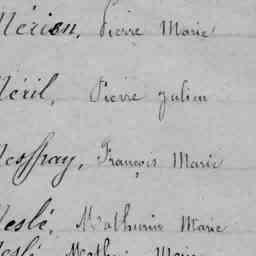 Mérion, Pierre Marie
Méril, Pierre Julien
Messpay, François Marie
Meslé, Mathurin Marie
Meslé, Mathurin Marie